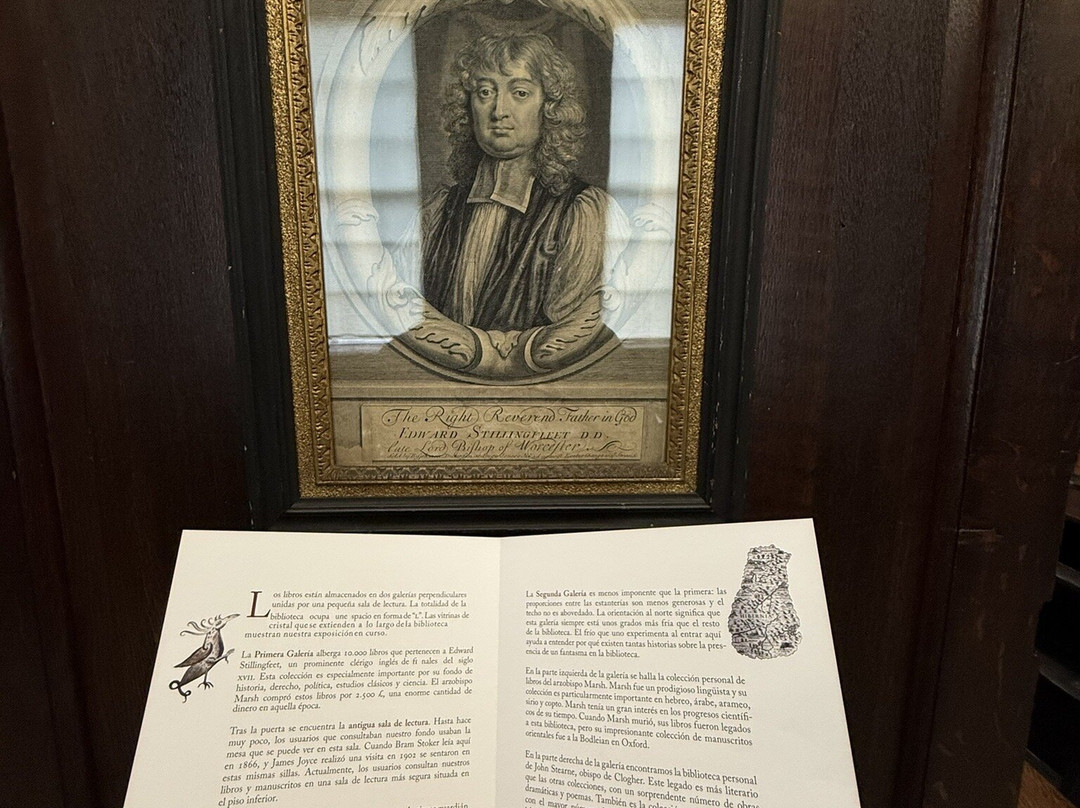 The Right Reverend Father in God
EDWARD STILLINGFLEET D.D.
late Lord Bishop of Worcester
Los libros están almacenados en dos galerías perpendiculares
unidas por una pequeña sala de lectura. La totalidad de la
biblioteca ocupa une spacio en forma de "L". Las vitrinas de
cristal que se extienden a lo largo de la biblioteca
muestran nuestra exposición en curso.
La Primera Galería alberga 10.000 libros que pertenecen a Edward
Stillingfeet, un prominente clérigo inglés de fi nales del siglo
XVII. Esta colección es especialmente importante por su fondo de
historia, derecho, política, estudios clásicos y ciencia. El arzobispo
Marsh compró estos libros por 2.500 £, una enorme cantidad de
dinero en aquella época.
Tras la puerta se encuentra la antigua sala de lectura. Hasta hace
muy poco, los usuarios que consultaban nuestro fondo usaban la
mesa que se puede ver en esta sala. Cuando Bram Stoker leía aquí
en 1866, y James Joyce realizó una visita en 1902 se sentaron en
estas mismas sillas. Actualmente, los usuarios consultan nuestros
libros y manuscritos en una sala de lectura más segura situada en
el piso inferior.
La Segunda Galería es menos imponente que la primera: las
proporciones entre las estanterías son menos generosas y el
techo no es abovedado. La orientación al norte significa que
esta galería siempre está unos grados más fría que el resto
de la biblioteca. El frío que uno experimenta al entrar aquí
ayuda a entender por qué existen tantas historias sobre la pres-
encia de un fantasma en la biblioteca.
En la parte izquierda de la galería se halla la colección personal de
libros del arzobispo Marsh. Marsh fue un prodigioso lingüista y su
colección es particularmente importante en hebreo, árabe, arameo,
sirio y copto. Marsh tenía un gran interés en los progresos científi-
cos de su tiempo. Cuando Marsh murió, sus libros fueron legados
a esta biblioteca, pero su impresionante colección de manuscritos
orientales fue a la Bodleian en Oxford.
En la parte derecha de la galería encontramos la biblioteca personal
de John Stearne, obispo de Clogher. Este legado es más literario
que las otras colecciones, con un sorprendente número de obras
dramáticas y poemas. También es la
con el mayor